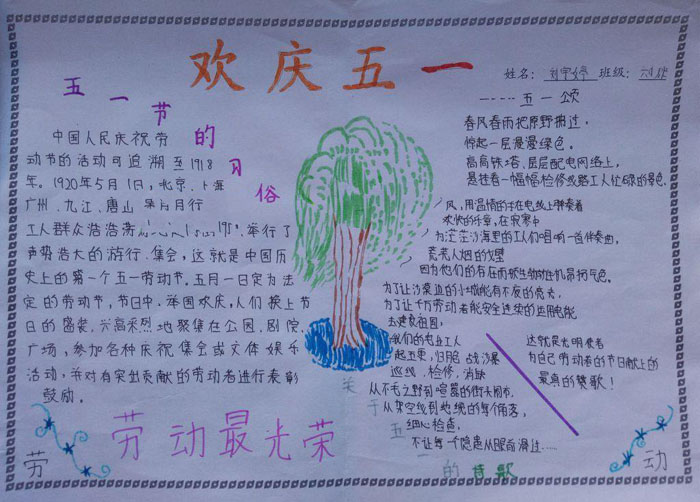 欢庆五一
姓名: 班级:
五一节的习俗
中国人民庆祝劳
动节的活动可追溯至1918
年。1920年5月1日,北京、上海
广州、九江、唐山
工人群众浩浩荡 举行了
声势浩大的游行、集会,这就是中国历
史上的第一个五一劳动节。五月一日定为法
定的劳动节,节日中,举国欢庆,人们换上节
日的盛装,兴高采烈地聚集在公园、剧院、
广场,参加各种庆祝集会或文体娱乐
活动,并对有突出贡献的劳动者进行表彰
鼓励。
劳动最光荣
----五一颂
春风春雨把原野拂过,
惊起一层漫漫绿色。
高高铁塔、层层配电网络上,
是挂着一幅幅检修线路工人忙碌的景色。
风,用温情的手在电线上弹奏着
欢快的乐章,在寂寞中
为茫茫沙海里的工人们唱响一首伴奏曲,
荒芜人烟的戈壁
因为他们的存在而顿生勃勃生机昂扬气色。
为了让沙漠边的小城能有不夜的亮光,
为了让千万劳动者能安全连续的运用电能
去建卖祖国,
我们的电业工人
起五更,归 战沙漠
巡线、检修、消缺
从不毛之野到喧嚣的街头闹市,
从架空线到地缆的每个角落,
细心检查,
不让每一个隐患从眼前滑过……
这就是光明使者
为自己劳动者的节日献上的
最真的赞歌!
关于五一的诗歌
劳动